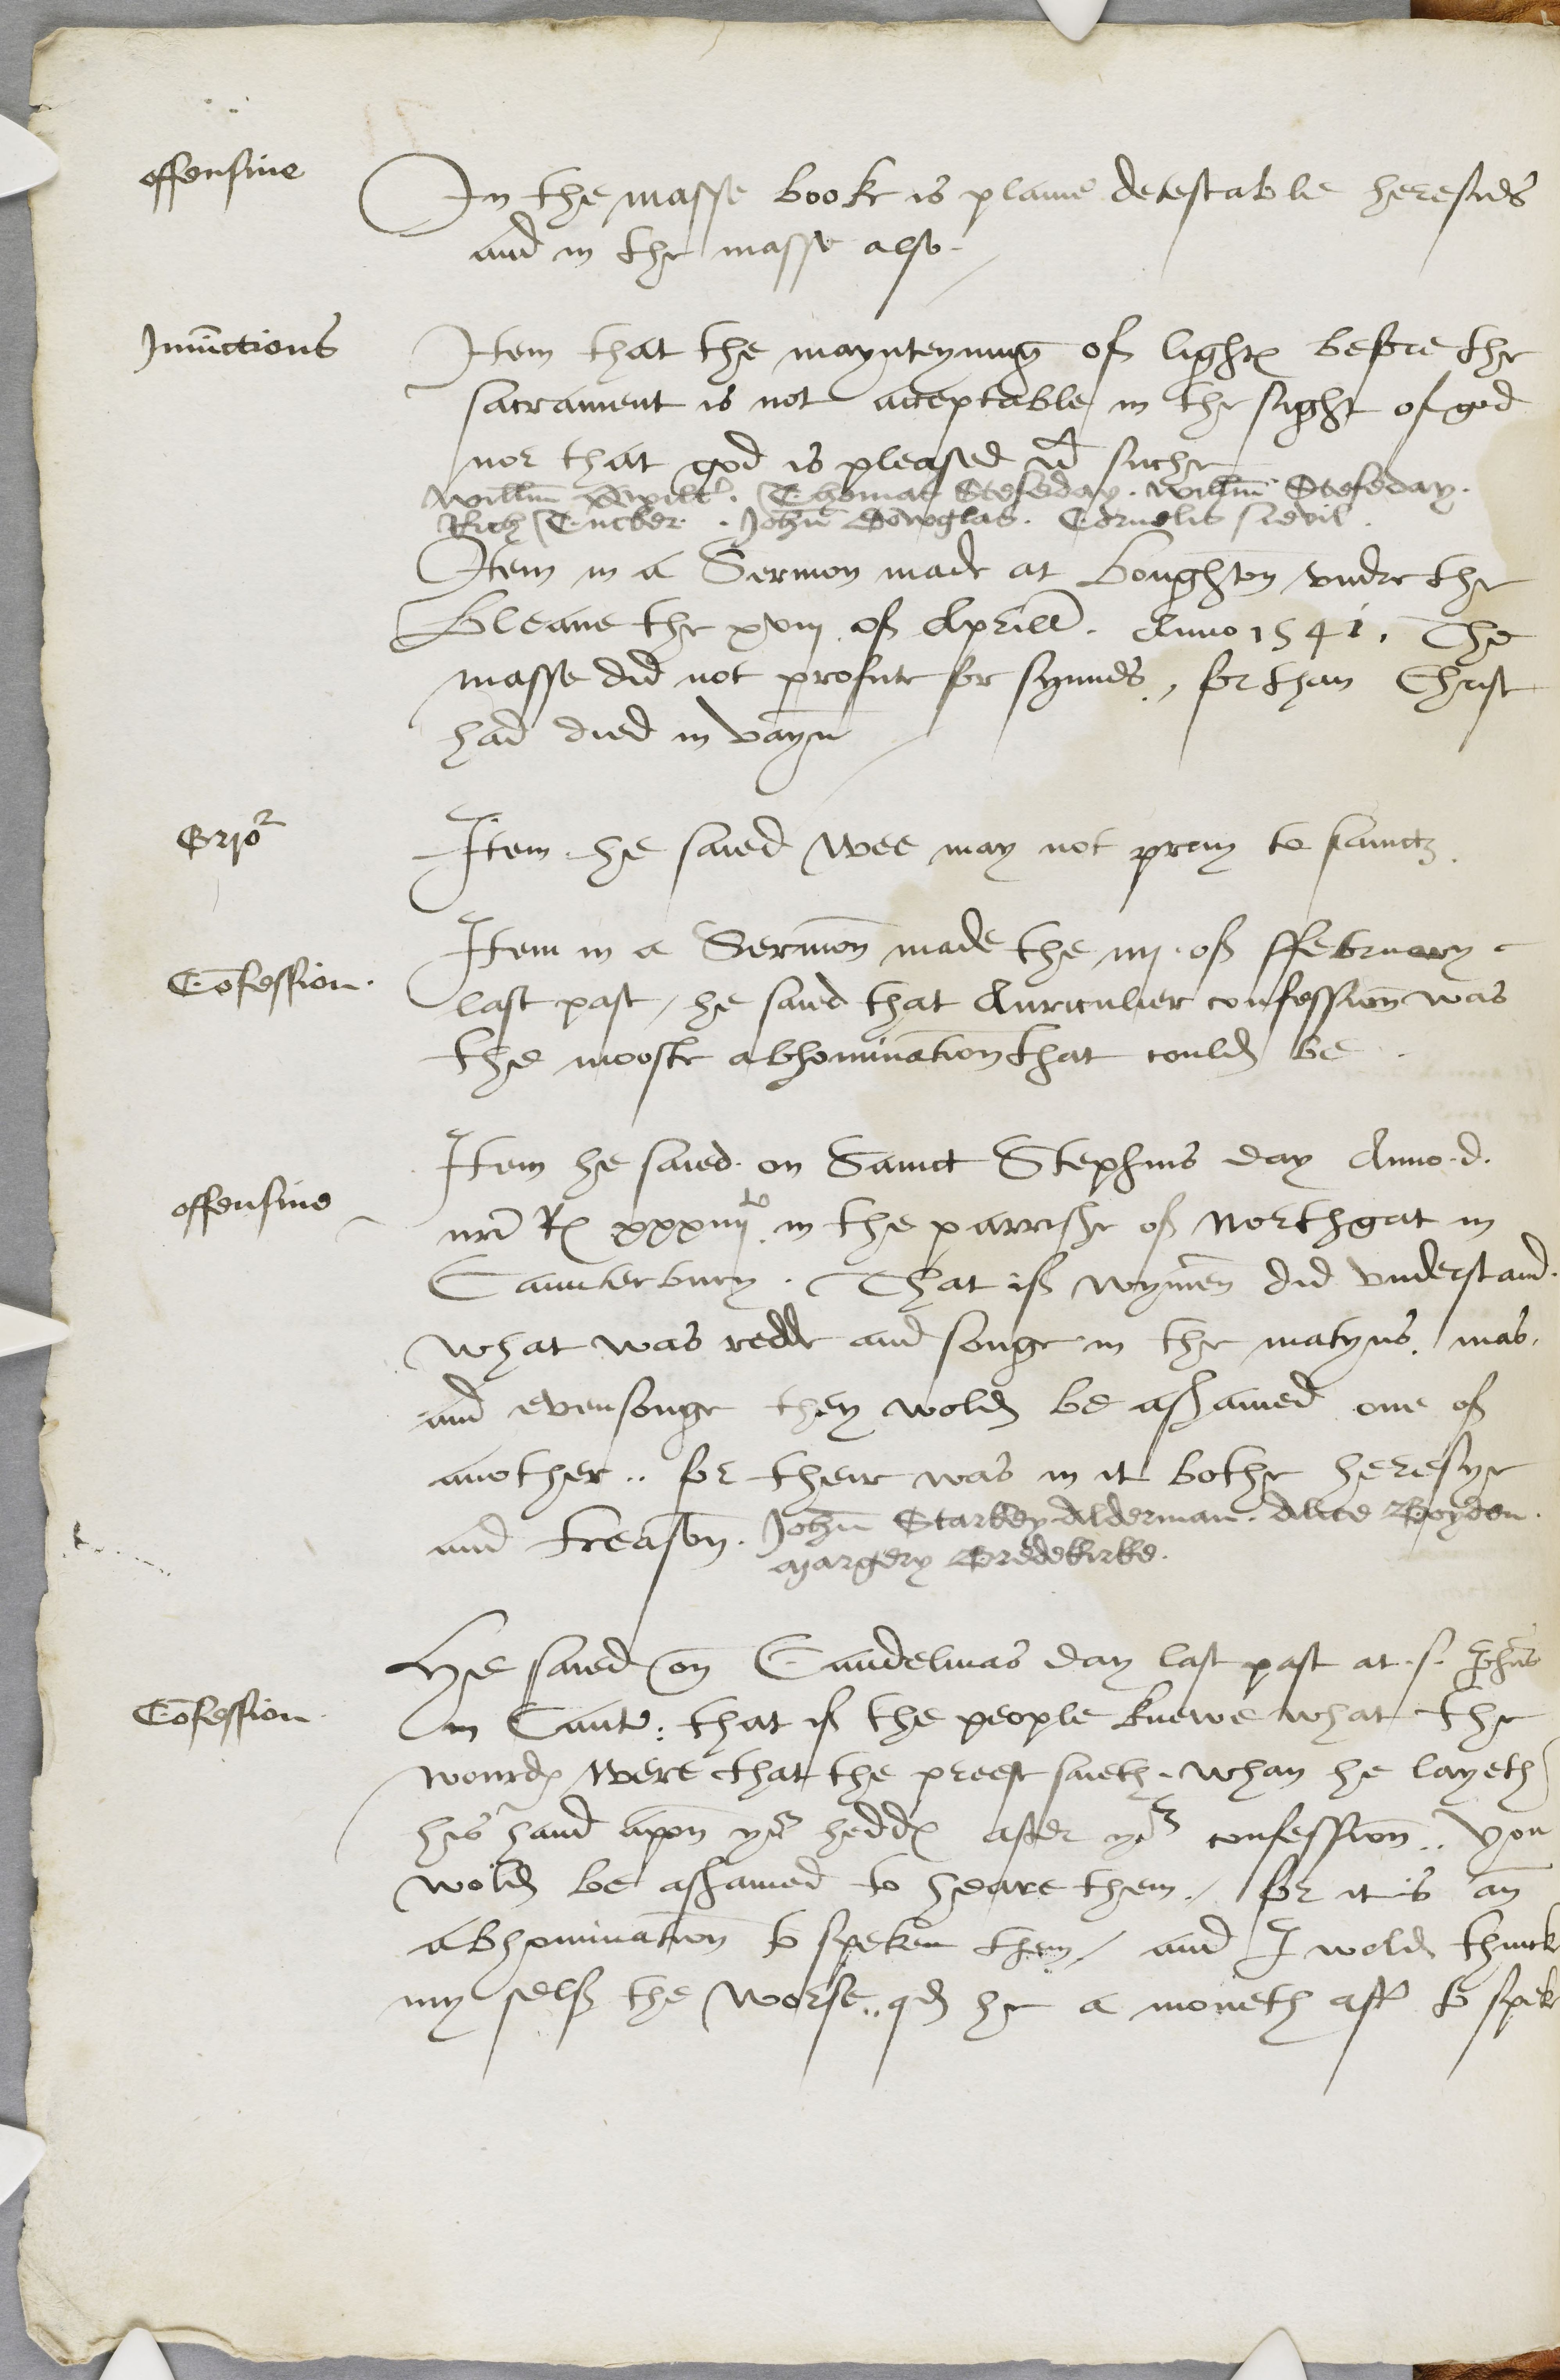 offensive
In the masse booke is plaine detestable heresies
and in the masse also
Iniūctions
Item that the maynteynīg of light℮ before the
sacrament is not acceptable in the sight of god
nor that god is pleased wt suche
Willm̄ . Thomas Stefeday . Willm̄ Stefeday .
Rich Tucker . Johñ Dowglas . Cornelis
Item in a Sermon made at Boughton vndre the
Bleane the xviij of Aprill . Anno 1541 . The
masse did not profite for synnes , for than Christ
had died in vayn
Item he saied wee may not pray to sainctz
Cōfession .
Item in a Sermon made the iiij . of ffebruary
last past / he saied that Auriculier confession was
the mooste abhomination that could be
offensive
Item he saied on Sainct Stephins day Anno . d .
nr̄i R℮ xxxiiijto in the parrishe of Northgat in
Caunterbury . That if wymen did vnderstand
what was redde and songe in the matyns , mas ,
and evensonge they wold be ashamed one of
another .. for their was in it bothe heresye
and treason . Johñ Starkey Alderman . Alice Boyden .
Margery Bredekirke .
Cōfession
He saied on Candelmas day last past at . s . Johns
in Cant . that if the people knewe what the
wourd℮ were that the preest saieth . whan he layeth
his hand apon yor hedd℮ after yor confession .. you
wold be ashamed to heare them / for it is an
abhomination to speken them / and I wold thinck
my self the worse .. qd he a moneth aftr to speke